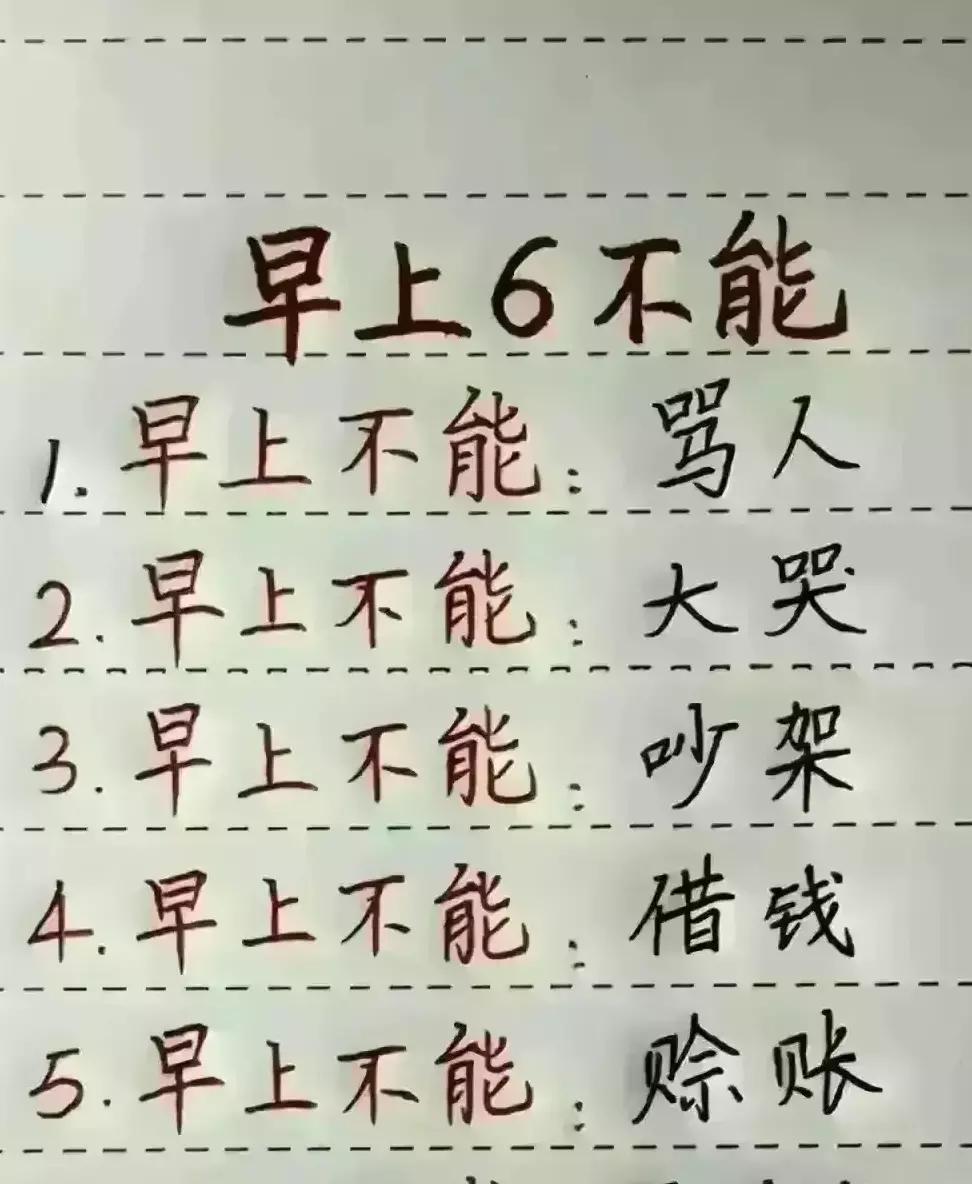 早上6不能
1.早上不能:骂人
2.早上不能:大哭
3.早上不能:吵架
4.早上不能:借钱
5.早上不能:赊账